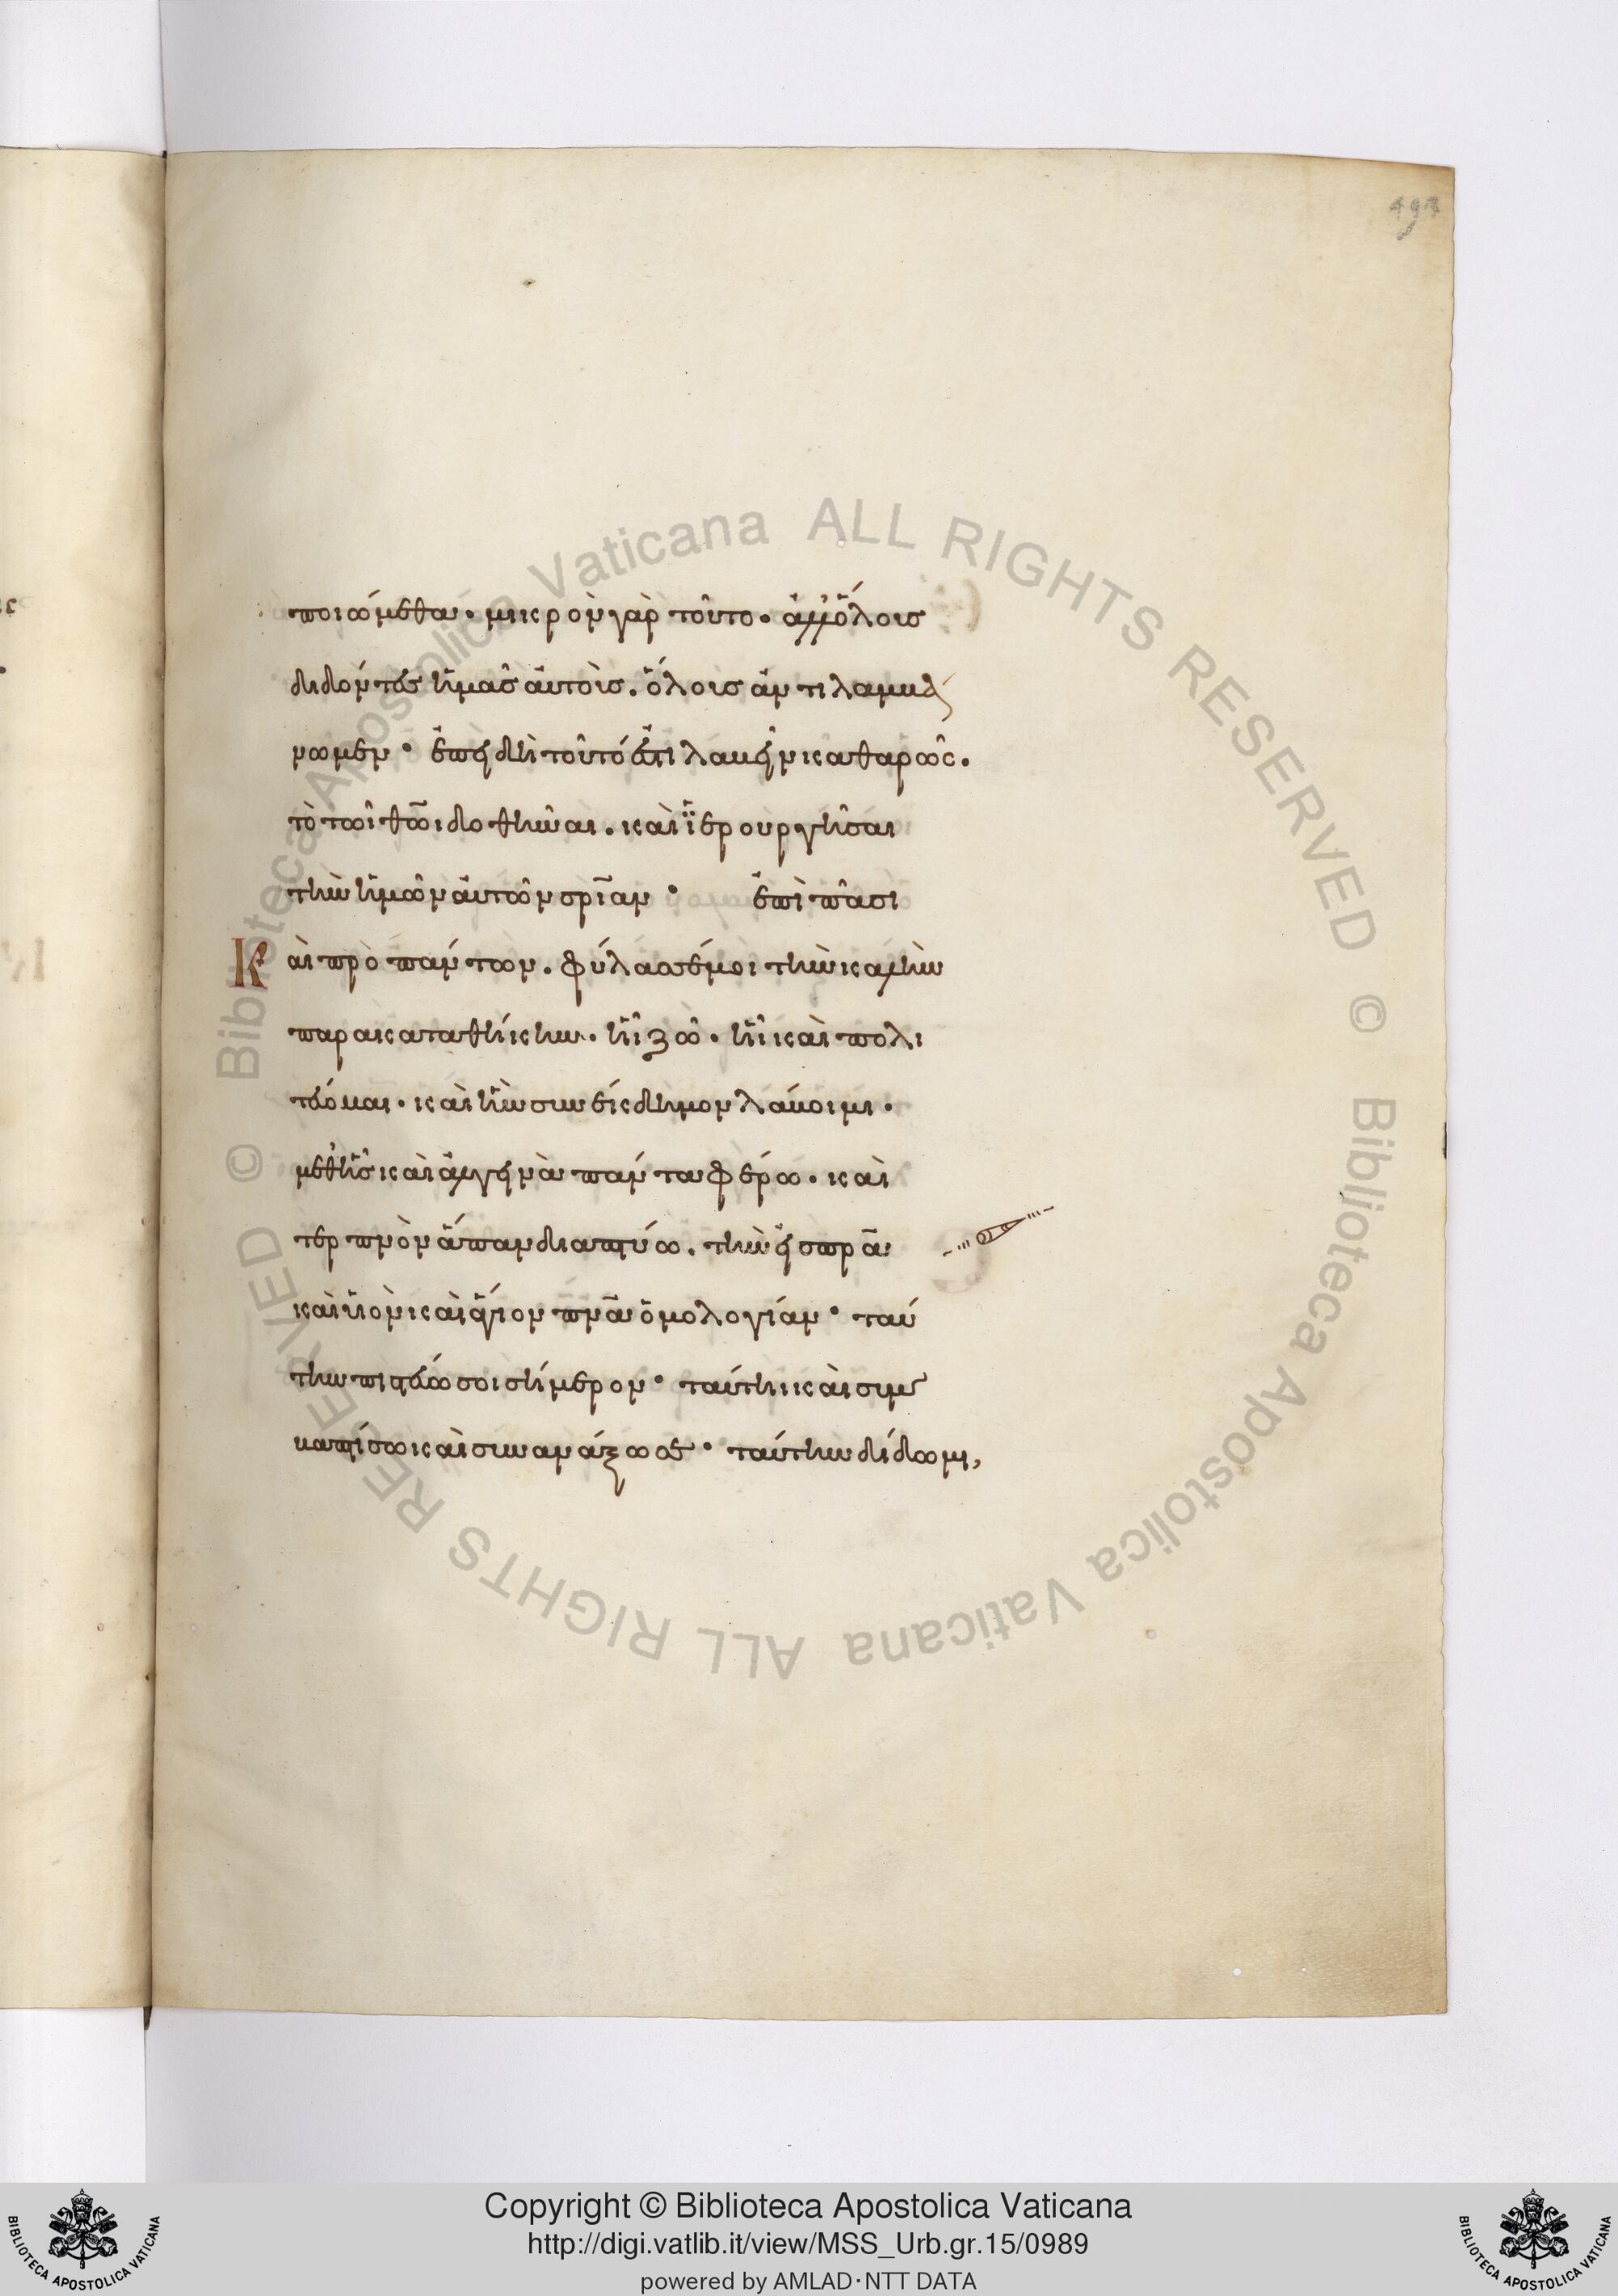 493
ποιώμεθα· μικρὸν γὰρ τοῦτο· ἀλλ' ὅλοις
διδόντες ἡμᾶς αὐτοὺς. ὅλοις ἀντιλαμβά
νωμεν· ἐπειδὴ τοῦτό ἐστι λαβεῖν καθαρῶς.
τὸ τῶι θῶι δοθῆναι. καὶ ἱερουργῆσαι
τὴν ἡμῶν αὐτῶν σρίαν· ἐπὶ πᾶσι
Καὶ πρὸ πάντων. φύλασσέ μοι τὴν καλὴν
παρακαταθήκην· ἧι ζῶ· ἧι καὶ πολι
τεύομαι· καὶ ἣν συνέκδημον λάβοιμι·
μεθ' ἧς καὶ ἀλγεινὰ πάντα φέρω· καὶ
τερπνὸν ἅπαν διαπτύω. τὴν εἰς πρα
καὶ υἱὸν καὶ ἅγιον πνα ὁμολογίαν· ταύ
την πιστεύω σοι σήμερον· ταύτηι καὶ συμ
βαπτίσω καὶ συνανάξω σε· ταύτην δίδωμι,
Copyright © Biblioteca Apostolica Vaticana
http://digi.vatlib.it/view/MSS_Urb.gr.15/0989
powered by AMLAD·NTT DATA
BIBLIOTECA APOSTOLICA VATICANA
BIBLIOTECA APOSTOLICA VATICANA
© Biblioteca Apostolica Vaticana ALL RIGHTS RESERVED © Biblioteca Apostolica Vaticana ALL RIGHTS RESERVED